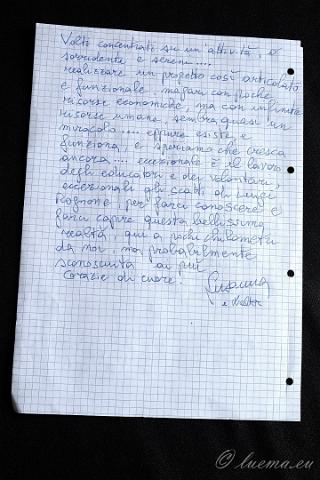 Volti concentrati su un'attività, o
sorridenti e sereni....
realizzare un progetto così articolato
e funzionale, magari con poche
risorse economiche, ma con infinite
risorse umane, sembra quasi un
miracolo.... eppure esiste e
funziona, e speriamo che cresca
ancora.... eccezionale è il lavoro
degli educatori e dei volontari,
eccezionali gli scatti di Luigi
per farci conoscere e
farci capire questa bellissima
realtà, qui a pochi chilometri
da noi, ma probabilmente
sconosciuta ai più
Grazie di cuore.
© luema.eu